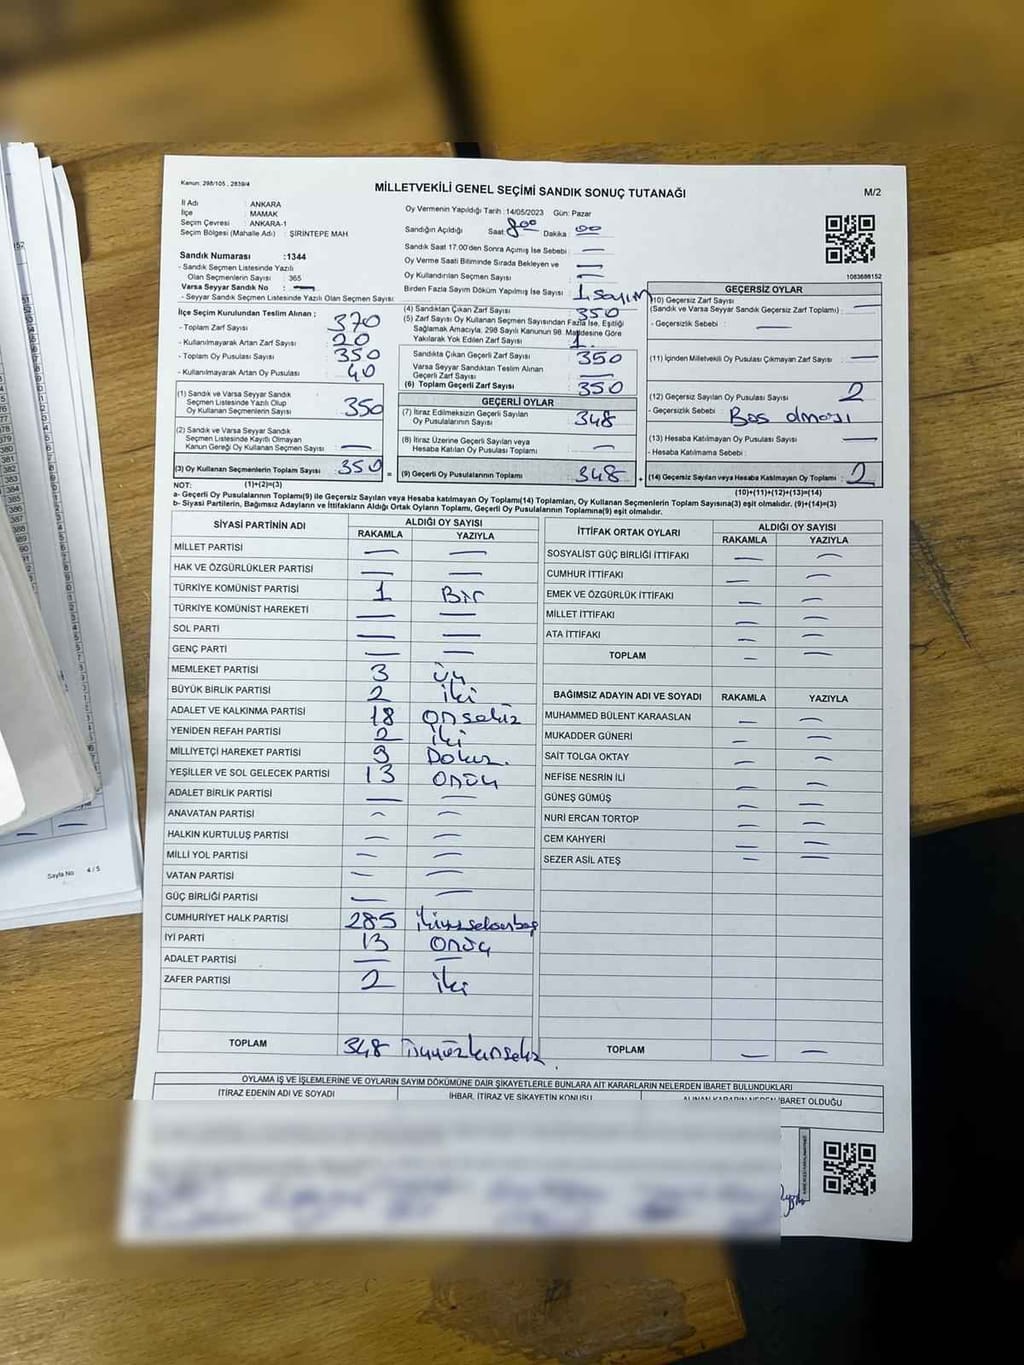 Kanun: 298/105 , 2839/4
MİLLETVEKİLİ GENEL SEÇİMİ SANDIK SONUÇ TUTANAĞI
M/2
İl Adı : ANKARA
İlçe : MAMAK
Seçim Çevresi : ANKARA-1
Seçim Bölgesi (Mahalle Adı) : ŞİRİNTEPE MAH.
Oy Vermenin Yapıldığı Tarih : 14/05/2023 Gün: Pazar
Sandığın Açıldığı Saat 8:00 Dakika : 00
Sandık Saat 17:00'den Sonra Açılmış İse Sebebi : —
Oy Verme Saati Bitiminde Sırada Bekleyen ve —
Oy Kullandırılan Seçmen Sayısı : —
Birden Fazla Sayım Döküm Yapılmış İse Sayısı : 1. sayım
1083686152
Sandık Numarası : 1344
- Sandık Seçmen Listesinde Yazılı
Olan Seçmenlerin Sayısı : 365
Varsa Seyyar Sandık No : —
- Seyyar Sandık Seçmen Listesinde Yazılı Olan Seçmen Sayısı :
İlçe Seçim Kurulundan Teslim Alınan ;
- Toplam Zarf Sayısı : 370
- Kullanılmayarak Artan Zarf Sayısı : 20
- Toplam Oy Pusulası Sayısı : 350
- Kullanılmayarak Artan Oy Pusulası : 40
(1) Sandık ve Varsa Seyyar Sandık
Seçmen Listesinde Yazılı Olup
Oy Kullanan Seçmenlerin Sayısı : 350
(2) Sandık ve Varsa Seyyar Sandık
Seçmen Listesinde Kayıtlı Olmayan
Kanun Gereği Oy Kullanan Seçmen Sayısı : —
(3) Oy Kullanan Seçmenlerin Toplam Sayısı : 350
(1)+(2)=(3)
(4) Sandıktan Çıkan Zarf Sayısı : 350
(5) Zarf Sayısı Oy Kullanan Seçmen Sayısından Fazla İse, Eşitliği
Sağlamak Amacıyla, 298 Sayılı Kanunun 98. Maddesine Göre
Yakılarak Yok Edilen Zarf Sayısı : 1.
Sandıkta Çıkan Geçerli Zarf Sayısı : 350
Varsa Seyyar Sandıktan Teslim Alınan
Geçerli Zarf Sayısı : —
(6) Toplam Geçerli Zarf Sayısı : 350
GEÇERLİ OYLAR
(7) İtiraz Edilmeksizin Geçerli Sayılan
Oy Pusulalarının Sayısı : 348
(8) İtiraz Üzerine Geçerli Sayılan veya
Hesaba Katılan Oy Pusulası Toplamı : —
= (9) Geçerli Oy Pusulalarının Toplamı : 348 +
GEÇERSİZ OYLAR
(10) Geçersiz Zarf Sayısı
(Sandık ve Varsa Seyyar Sandık Geçersiz Zarf Toplamı) : —
- Geçersizlik Sebebi : —
(11) İçinden Milletvekili Oy Pusulası Çıkmayan Zarf Sayısı : —
(12) Geçersiz Sayılan Oy Pusulası Sayısı : 2
- Geçersizlik Sebebi : Boş olması
(13) Hesaba Katılmayan Oy Pusulası Sayısı : —
- Hesaba Katılmama Sebebi :
(14) Geçersiz Sayılan veya Hesaba Katılmayan Oy Toplamı : 2
(10)+(11)+(12)+(13)=(14)
NOT:
a- Geçerli Oy Pusulalarının Toplamı(9) ile Geçersiz Sayılan veya Hesaba katılmayan Oy Toplamı(14) Toplamları, Oy Kullanan Seçmenlerin Toplam Sayısına(3) eşit olmalıdır. (9)+(14)=(3)
b- Siyasi Partilerin, Bağımsız Adayların ve İttifakların Aldığı Ortak Oyların Toplamı, Geçerli Oy Pusulalarının Toplamına(9) eşit olmalıdır.
SİYASİ PARTİNİN ADI ALDIĞI OY SAYISI
RAKAMLA YAZIYLA
MİLLET PARTİSİ — —
HAK VE ÖZGÜRLÜKLER PARTİSİ — —
TÜRKİYE KOMÜNİST PARTİSİ 1 Bir
TÜRKİYE KOMÜNİST HAREKETİ — —
SOL PARTİ — —
GENÇ PARTİ — —
MEMLEKET PARTİSİ 3 üç
BÜYÜK BİRLİK PARTİSİ 2 iki
ADALET VE KALKINMA PARTİSİ 18 onsekiz
YENİDEN REFAH PARTİSİ 2 iki
MİLLİYETÇİ HAREKET PARTİSİ 9 Dokuz.
YEŞİLLER VE SOL GELECEK PARTİSİ 13 onüç
ADALET BİRLİK PARTİSİ — —
ANAVATAN PARTİSİ — —
HALKIN KURTULUŞ PARTİSİ — —
MİLLİ YOL PARTİSİ — —
VATAN PARTİSİ — —
GÜÇ BİRLİĞİ PARTİSİ — —
CUMHURİYET HALK PARTİSİ 285 ikiyüzseksenbeş
İYİ PARTİ 13 onüç
ADALET PARTİSİ — —
ZAFER PARTİSİ 2 iki
TOPLAM 348 üçyüzkırksekiz
İTTİFAK ORTAK OYLARI ALDIĞI OY SAYISI
RAKAMLA YAZIYLA
SOSYALİST GÜÇ BİRLİĞİ İTTİFAKI — —
CUMHUR İTTİFAKI — —
EMEK VE ÖZGÜRLÜK İTTİFAKI — —
MİLLET İTTİFAKI — —
ATA İTTİFAKI — —
TOPLAM — —
BAĞIMSIZ ADAYIN ADI VE SOYADI RAKAMLA YAZIYLA
MUHAMMED BÜLENT KARAASLAN — —
MUKADDER GÜNERİ — —
SAİT TOLGA OKTAY — —
NEFİSE NESRİN İLİ — —
GÜNEŞ GÜMÜŞ — —
NURİ ERCAN TORTOP — —
CEM KAHYERİ — —
SEZER ASİL ATEŞ — —
TOPLAM — —
OYLAMA İŞ VE İŞLEMLERİNE VE OYLARIN SAYIM DÖKÜMÜNE DAİR ŞİKAYETLERLE BUNLARA AİT KARARLARIN NELERDEN İBARET BULUNDUKLARI
İTİRAZ EDENİN ADI VE SOYADI İHBAR, İTİRAZ VE ŞİKAYETİN KONUSU ALINAN KARARIN NEDEN İBARET OLDUĞU
Sayfa No 4 / 5